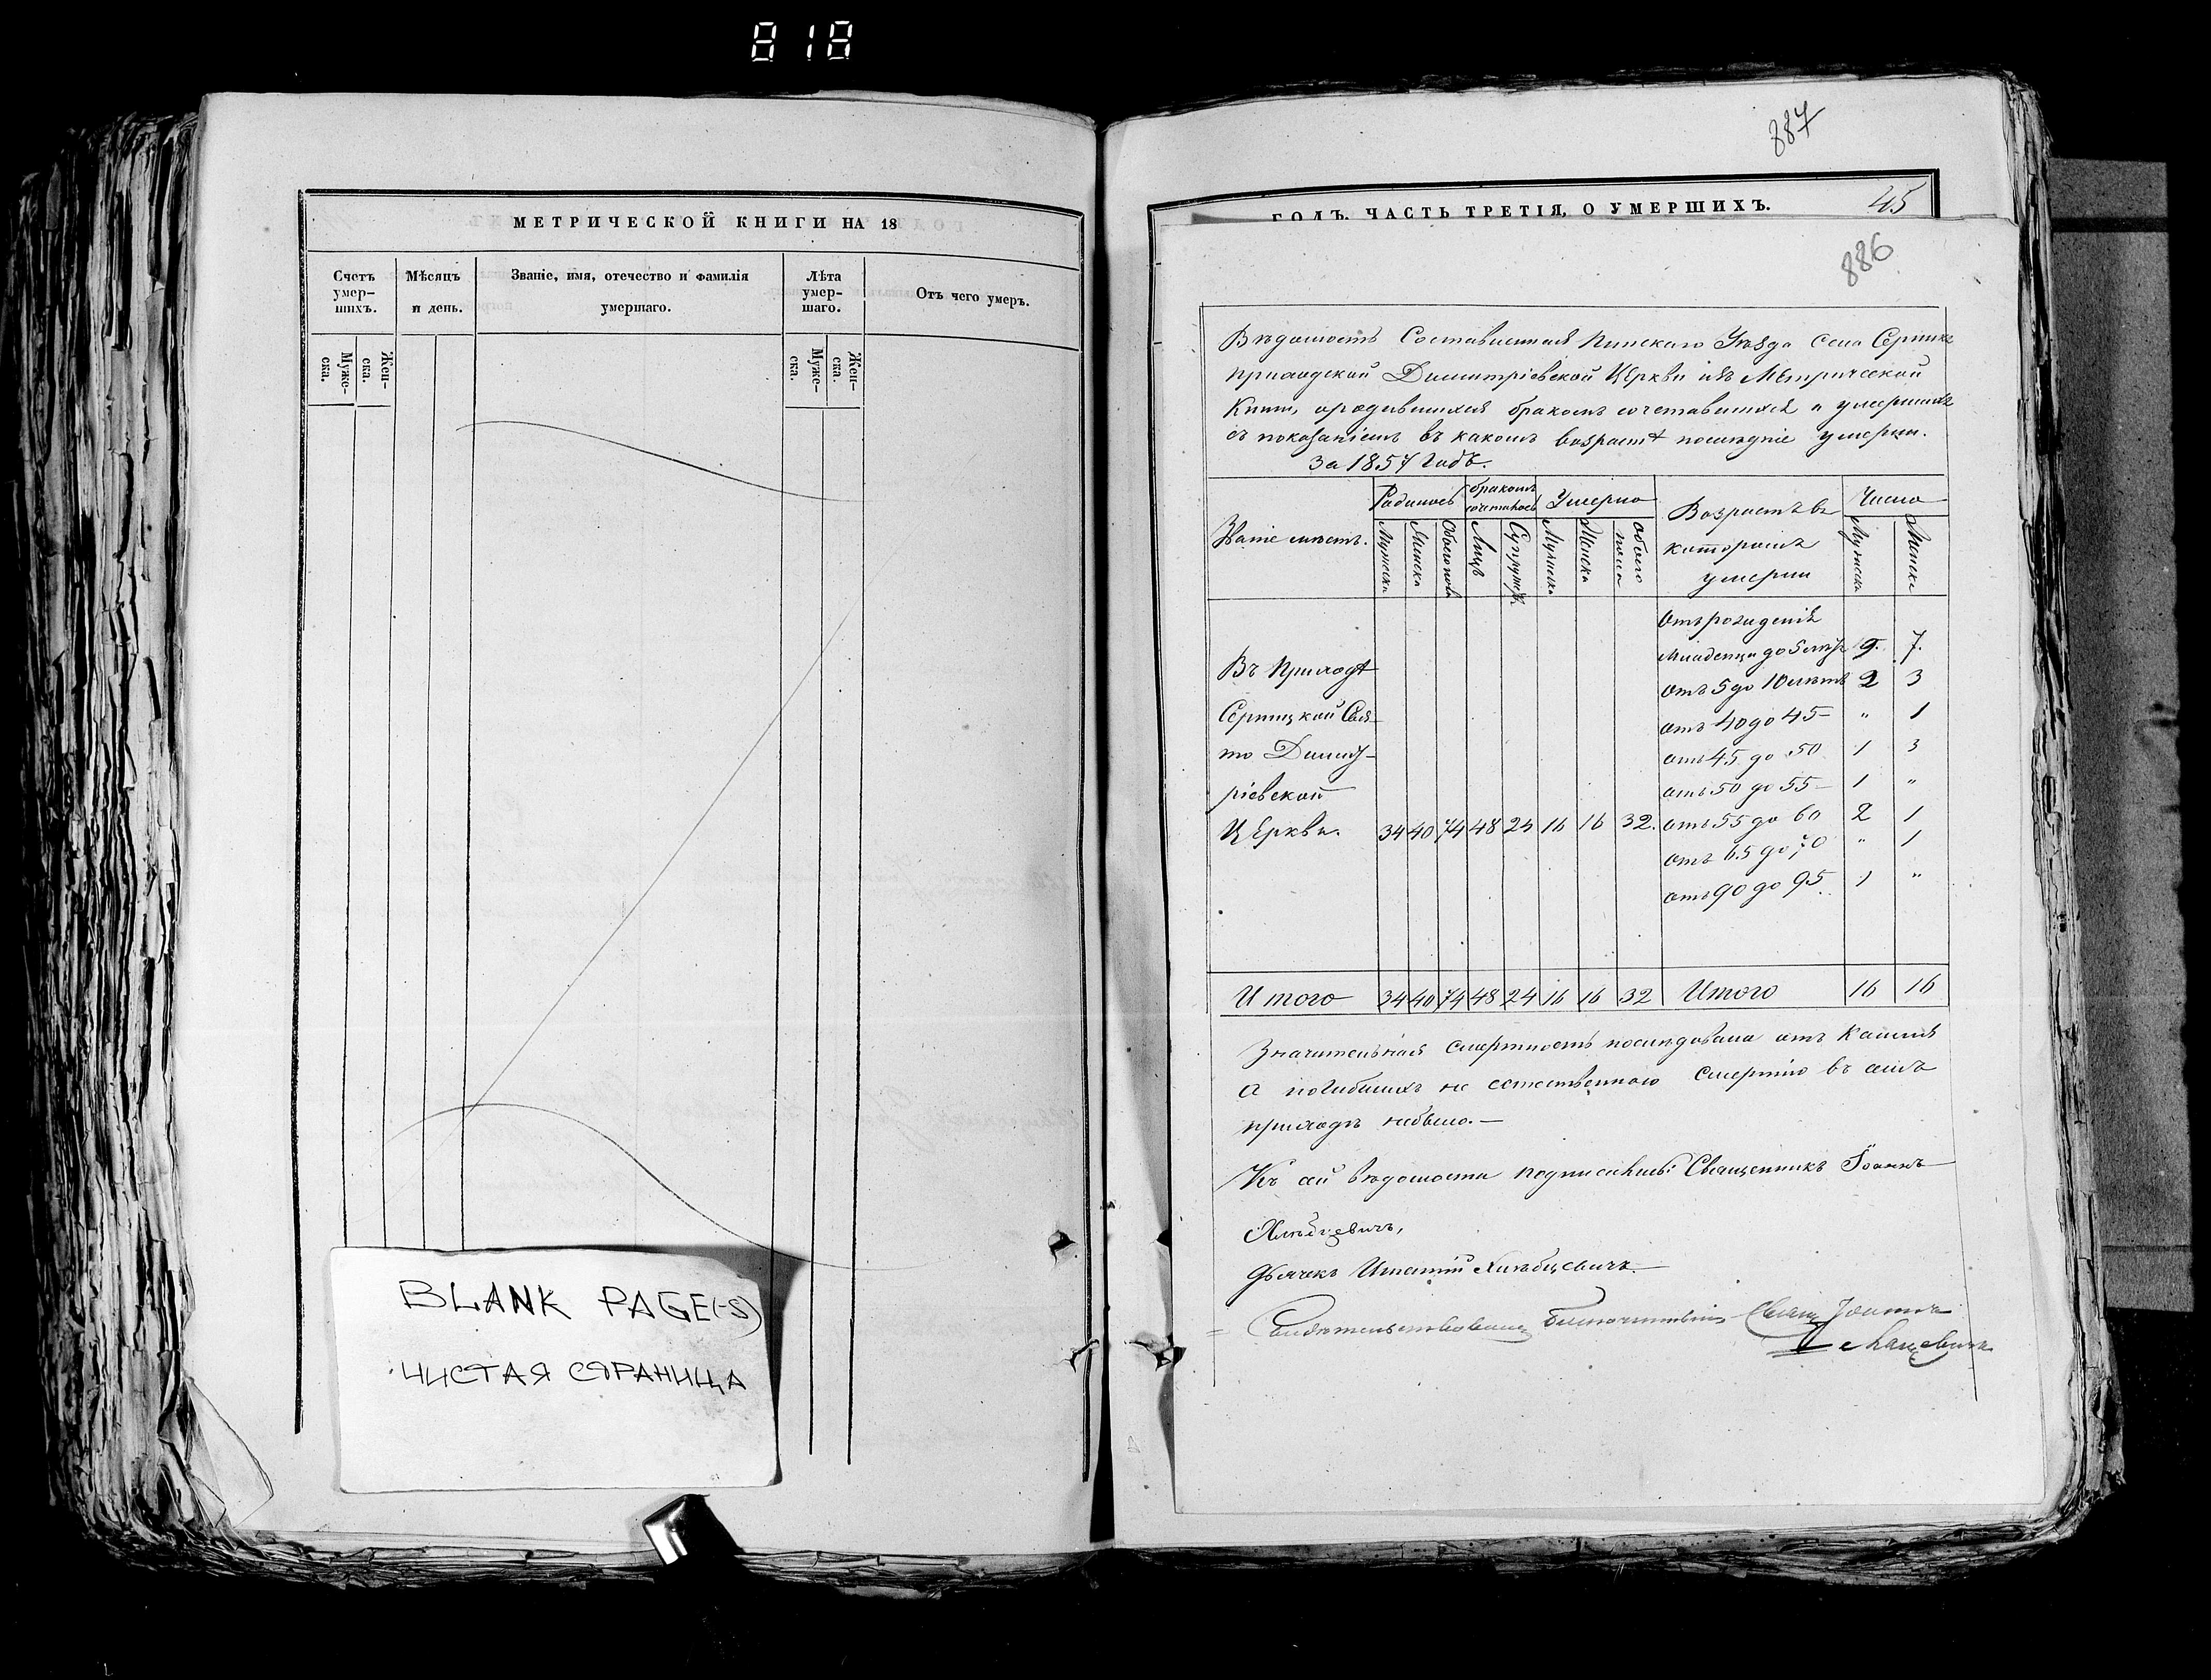 818
МЕТРИЧЕСКОЙ КНИГИ НА 18
Счетъ умер-шихъ.
Мѣсяцъ и день.
Званіе, имя, отечество и фамилія умершаго.
Лѣта умер-шаго.
Отъ чего умеръ.
Муже-ска.
Жен-ска.
Муже-ска.
Жен-ска.
BLANK PAGE(-S)
ЧИСТАЯ СТРАНИЦА
887
ГОДЪ, ЧАСТЬ ТРЕТІЯ, О УМЕРШИХЪ.
45
886
Вѣдомость Составленная Пинскаго Уѣзда Села
приходской Димитріевской Церкви изъ Метрической
Книги, о родившихся бракомъ сочетавшихся и умершихъ
съ показаніемъ въ какомъ возрастѣ послѣдніе умерли.
За 1857 Годъ.
Званіе мѣстъ.
Родилось
бракомъ
Умерло
Возрастъ въ
которомъ
умерли
Число
Мужска
Женска
Обоего пола
Лицъ
Супруж.
Мужска
Женска
обоего пола
Мужска
Женска
Отъ рожденія
младенцы до 5 лѣтъ 9. 7.
отъ 5 до 10 лѣтъ 2 3
отъ 40 до 45 - " 1
отъ 45 до 50 1 3
отъ 50 до 55 - 1 "
отъ 55 до 60 2 1
отъ 65 до 70 " 1
отъ 90 до 95 1 "
Въ Приходѣ
Серницкой Свя-
то Димит-
ріевской
Церкви. 34 40 74 48 24 16 16 32.
Итого 34 40 74 48 24 16 16 32 Итого 16 16
Значительная смертность послѣдовала отъ Кашля
а погибшихъ не естественною Смертію въ семъ
приходѣ небыло. —
Къ сей вѣдомости подписались: Священникъ Іоаннъ
Хлѣбцевичъ,
Дьячекъ Игнатій Хлѣбцевичъ. —
Свящ